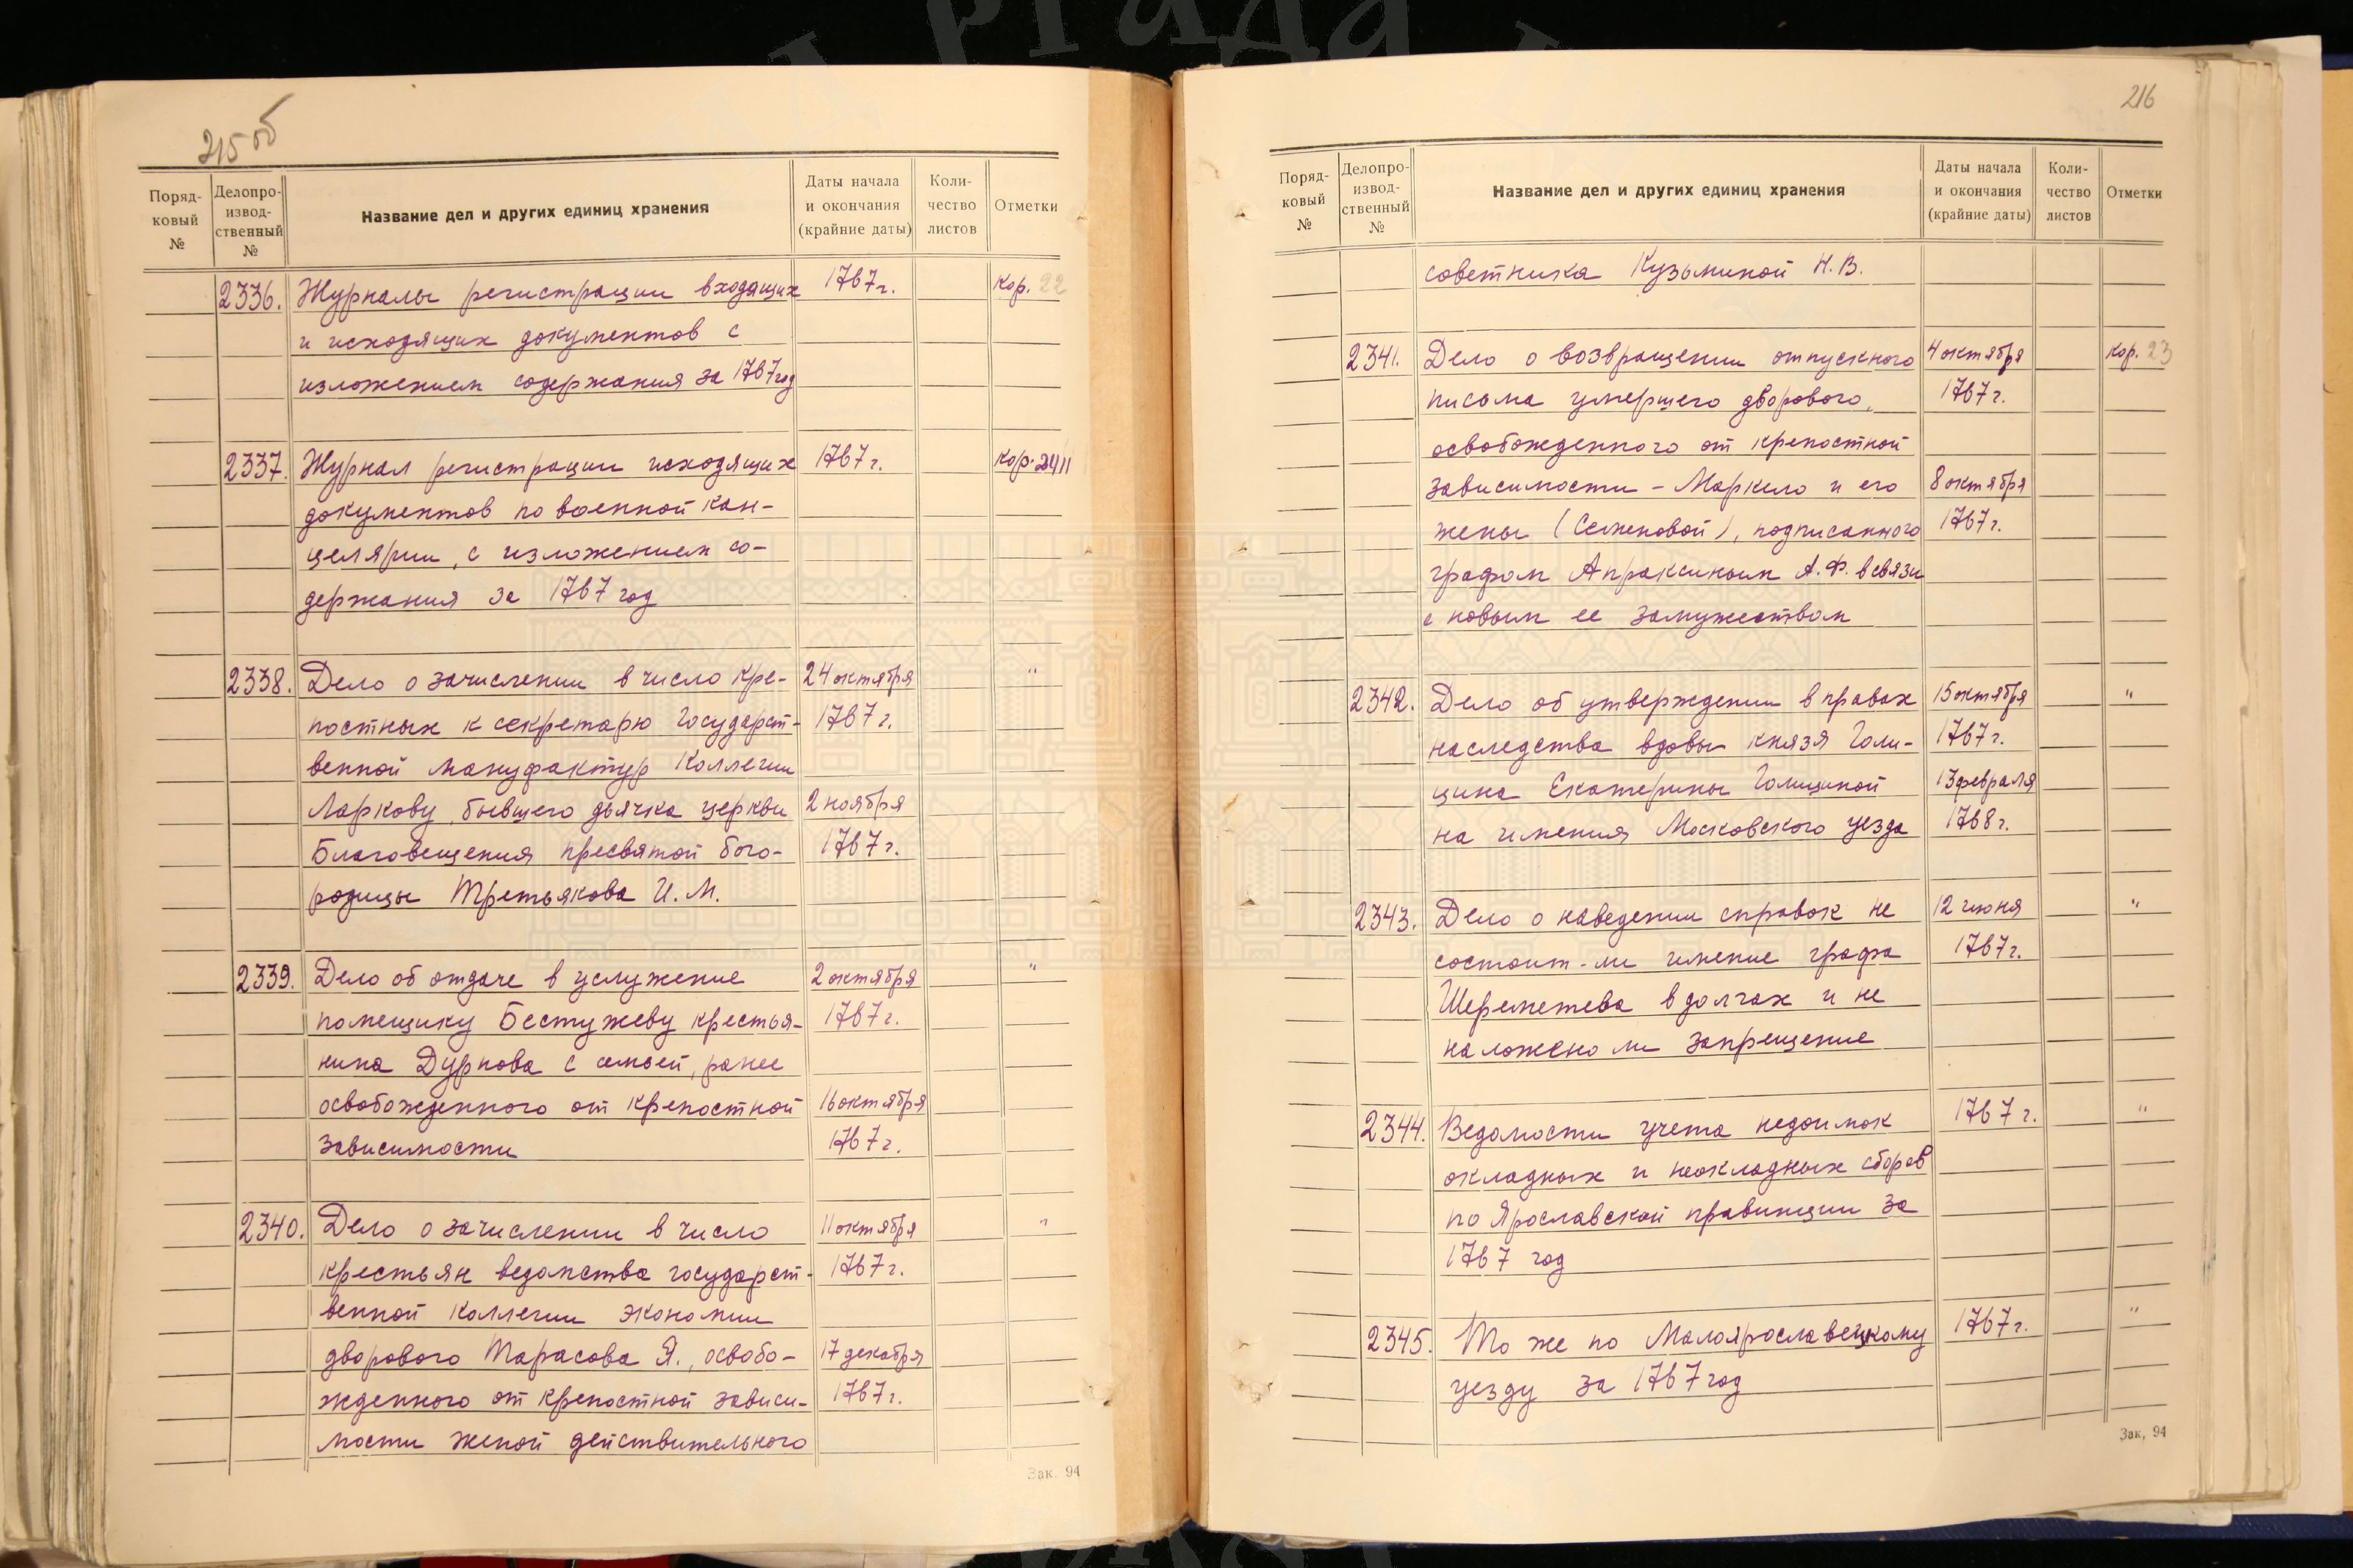 215 об
Поряд-
ковый
№
Делопро-
извод-
ственный
№
Название дел и других единиц хранения
Даты начала
и окончания
(крайние даты)
Коли-
чество
листов
Отметки
2336. Журналы регистрации входящих 1767 г. Кор. 22
и исходящих документов с
изложением содержания за 1767 год
2337. Журнал регистрации исходящих 1767 г. Кор.
документов по военной кан-
целярии, с изложением со-
держания за 1767 год
2338. Дело о зачислении в число кре- 24 октября "
постных к секретарю Государст- 1767 г.
венной мануфактур Коллегии
Ларкову, бывшего дьячка церкви 2 ноября
Благовещения пресвятой бого- 1767 г.
родицы Третьякова И.М.
2339. Дело об отдаче в услужение 2 октября "
помещику Бестужеву крестья- 1767 г.
нина Дурнова с семьей, ранее
освобожденного от крепостной 16 октября
зависимости 1767 г.
2340. Дело о зачислении в число 11 октября "
крестьян ведомства государст- 1767 г.
венной коллегии экономии
дворового Тарасова Я., освобо- 17 декабря
жденного от крепостной зависи- 1767 г.
мости женой действительного
Зак. 94
216
Поряд-
ковый
№
Делопро-
извод-
ственный
№
Название дел и других единиц хранения
Даты начала
и окончания
(крайние даты)
Коли-
чество
листов
Отметки
советника Кузьминой Н.В.
2341. Дело о возвращении отпускного 4 октября кор. 23
письма умершего дворового, 1767 г.
освобожденного от крепостной
зависимости - Маркело и его 8 октября
жены (Семеновой), подписанного 1767 г.
графом Апраксиным А.Ф. в связи
с новым ее замужеством
2342. Дело об утверждении в правах 15 октября "
наследства вдовы князя Голи- 1767 г.
цина Екатерины Голициной 13 февраля
на имения Московского уезда 1768 г.
2343. Дело о наведении справок не 12 июня "
состоит-ли имение графа 1767 г.
Шереметева в долгах и не
наложено ли запрещение
2344. Ведомости учета недоимок 1767 г. "
окладных и неокладных сборов
по Ярославской правинции за
1767 год
2345. То же по Малоярославецкому 1767 г. "
уезду за 1767 год
Зак. 94